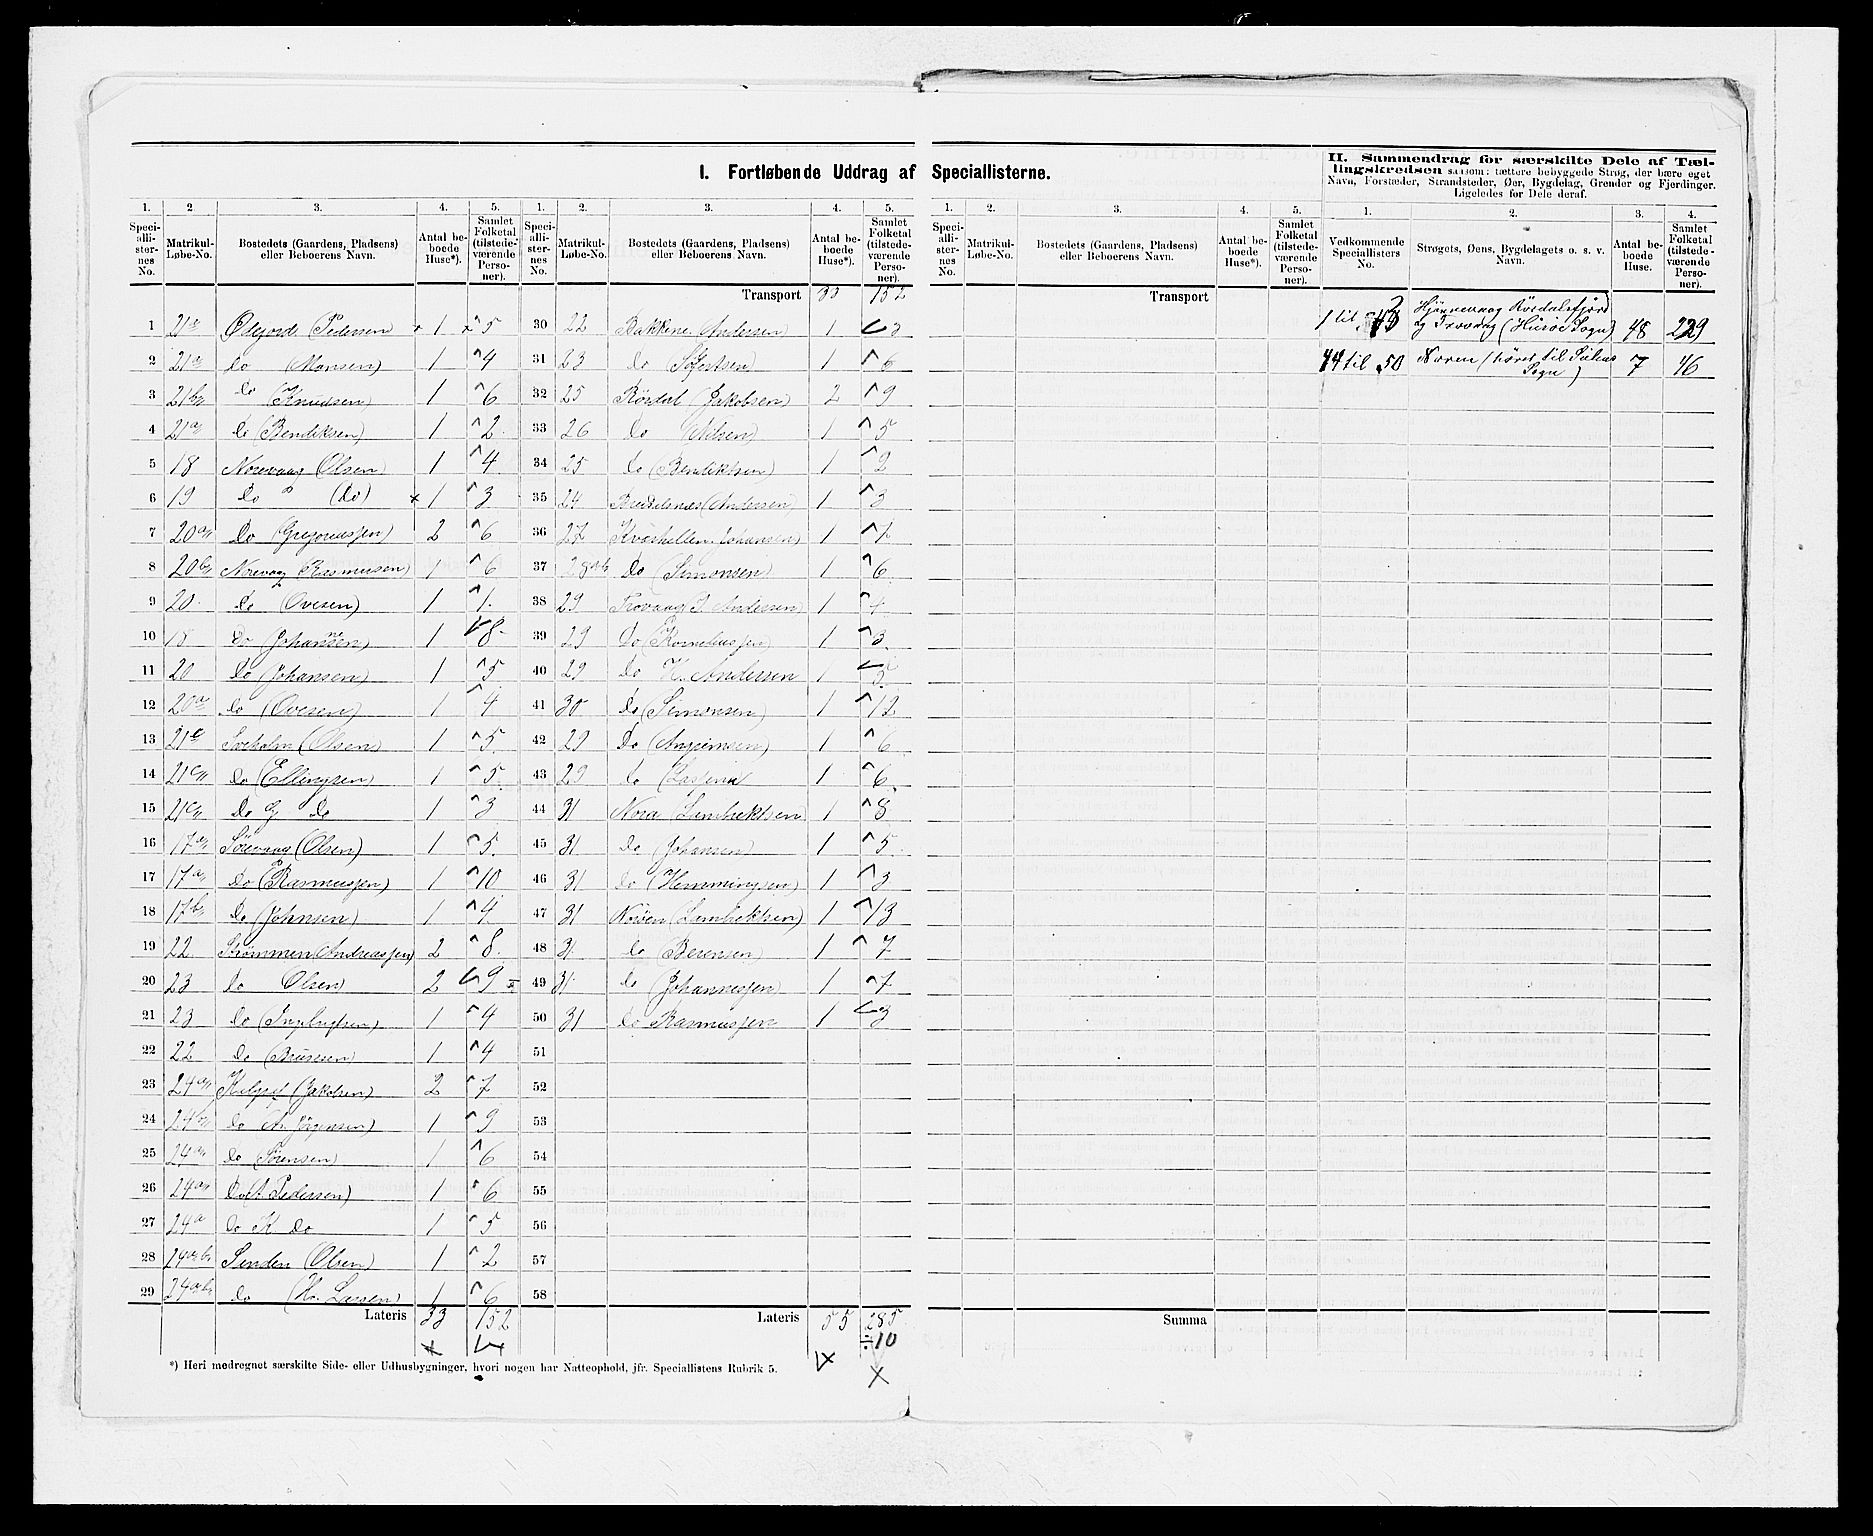 I. Fortløbende Uddrag af Speciallisterne.
II. Sammendrag for særskilte Dele af Tæl-
lingskredsen saasom: tættere bebyggede Strøg, der bære eget
Navn, Forstæder, Strandsteder, Øer, Bygdelag, Grender og Fjerdinger.
Ligeledes for Dele deraf.
1. 2 3. 4. 5. 1. 2. 3. 4. 5. 1. 2. 3. 4. 5. 1. 2. 3. 4.
Speciallisternes No. Matrikul-Løbe-No. Bostedets (Gaardens, Pladsens) eller Beboerens Navn. Antal beboede Huse*). Samlet Folketal (tilstedeværende Personer).
Speciallisternes No. Matrikul-Løbe-No. Bostedets (Gaardens, Pladsens) eller Beboerens Navn. Antal beboede Huse*). Samlet Folketal (tilstedeværende Personer).
Speciallisternes No. Matrikul-Løbe-No. Bostedets (Gaardens, Pladsens) eller Beboerens Navn. Antal beboede Huse*). Samlet Folketal (tilstedeværende Personer).
Vedkommende Speciallisters No. Strøgets, Øens, Bygdelagets o. s. v. Navn. Antal beboede Huse. Samlet Folketal (tilstedeværende Personer).
Transport 33 152
Transport
1 Pedersen 1 5
2 21a do (Monsen) 1 4
3 21b do (Knudsen) 1 6
4 21a do (Bendiksen) 1 2
5 18 Norevaag (Olsen) 1 4
6 19 do (do) 1 3
7 20a do (Gregoriussen) 2 6
8 20b Norevaag (Rasmussen) 1 6
9 20 do (Ovesen) 1 1
10 18 do 1 8
11 20 do (Johansen) 1 5
12 20a do (Ovesen) 1 4
13 (Olsen) 1 5
14 21c do (Ellingsen) 1 5
15 21c do G do 1 3
16 17a Sørevaag (Olsen) 1 5
17 17a do (Rasmussen) 1 10
18 17b do (Johnsen) 1 4
19 22 Strømmen (Andreassen) 2 8
20 23 do Olsen) 2 9
21 23 do 1 4
22 22 do 1 4
23 24a (Jakobsen) 2 7
24 24 do 1 9
25 24a do Sørensen) 1 6
26 24a do (A. Pedersen) 1 6
27 24a do K do 1 5
28 Sanden (Olsen) 1 2
29 24 do Larsen) 1 6
Lateris 33 152
30 22 Bakkene Andersen) 1 3
31 23 do 1 6
32 25 (Jakobsen) 2 9
33 26 do (Nilsen) 1 5
34 25 do (Bendiktsen) 1 2
35 24 (Andersen) 1 3
36 27 Johansen) 1
37 do (Simonsen) 1 6
38 29 Trovaag J. Andersen) 1
39 29 do (Korneliussen) 1 3
40 29 do K. Andersen 1 5
41 30 do (Simonsen) 1 12
42 29 do 1 6
43 29 do 1 6
44 31 Nora (Lambrektsen) 1 8
45 31 do (Johansen) 1 5
46 31 do (Hemmingsen) 1 3
47 31 (Lambrektsen) 1 13
48 31 do (Berensen) 1 7
49 31 do (Johannessen) 1 7
50 31 do Rasmussen 1 3
51
52
53
54
55
56
57
58
Lateris 55 285
÷10
Summa
1 til 43 48 229
og Trovaag (Husø Sogn)
44 til 50 Noren (hører til 7 46
Sogn)
*) Heri medregnet særskilte Side- eller Udhusbygninger, hvori nogen har Natteophold, jfr. Speciallistens Rubrik 5.